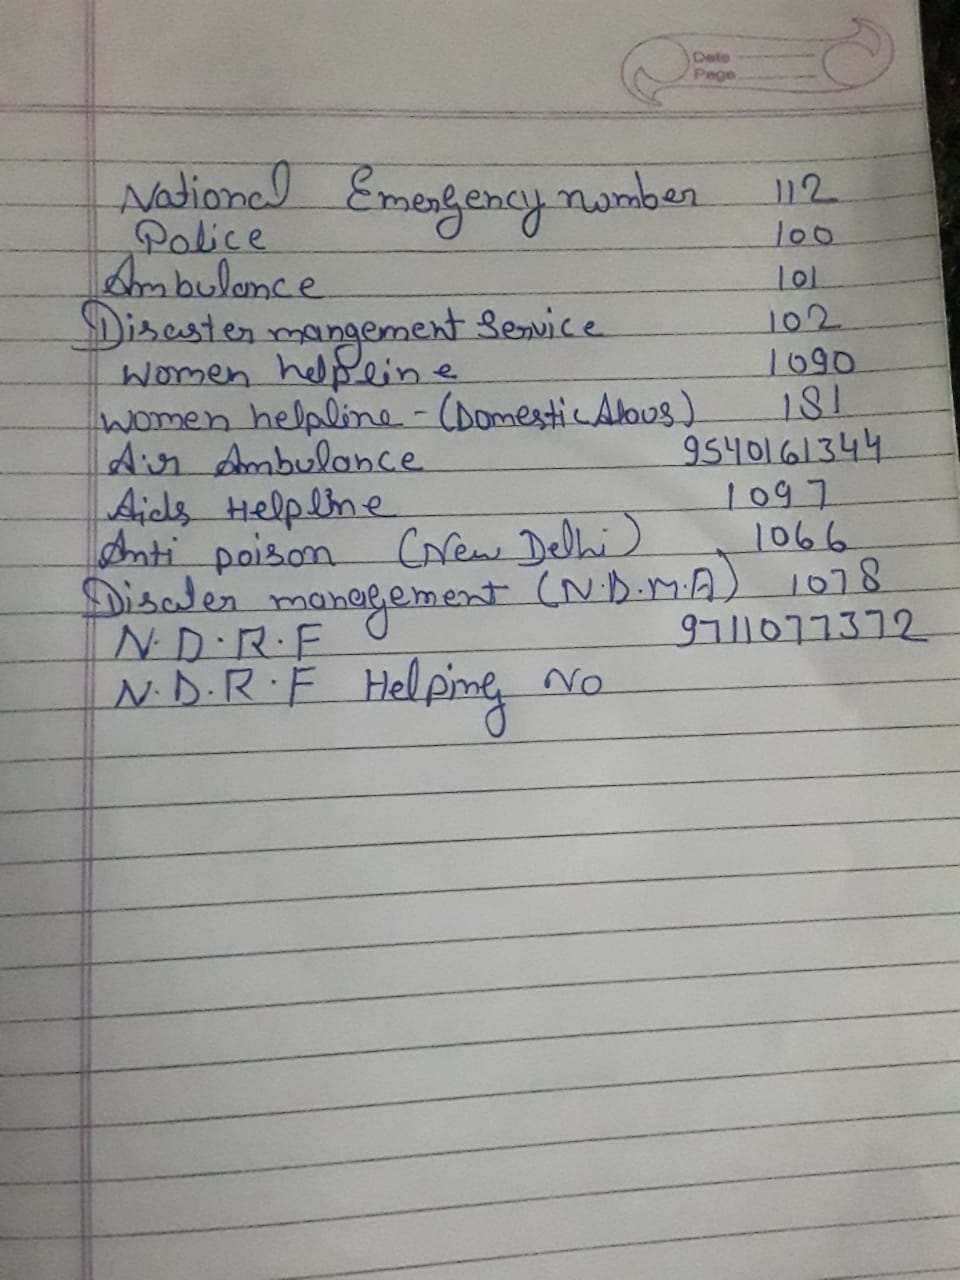 Date
Page
National Emergency number 112
Police 100
Ambulance 101
Disaster mangement Service 102
Women helpline 1090
Women helpline - (Domestic Abous) 181
Air Ambulance 9540161344
Aids Helpline 1097
Anti poison (New Delhi) 1066
Disater management (N.D.M.A) 1078
N.D.R.F 9711077372
N.D.R.F Helping No